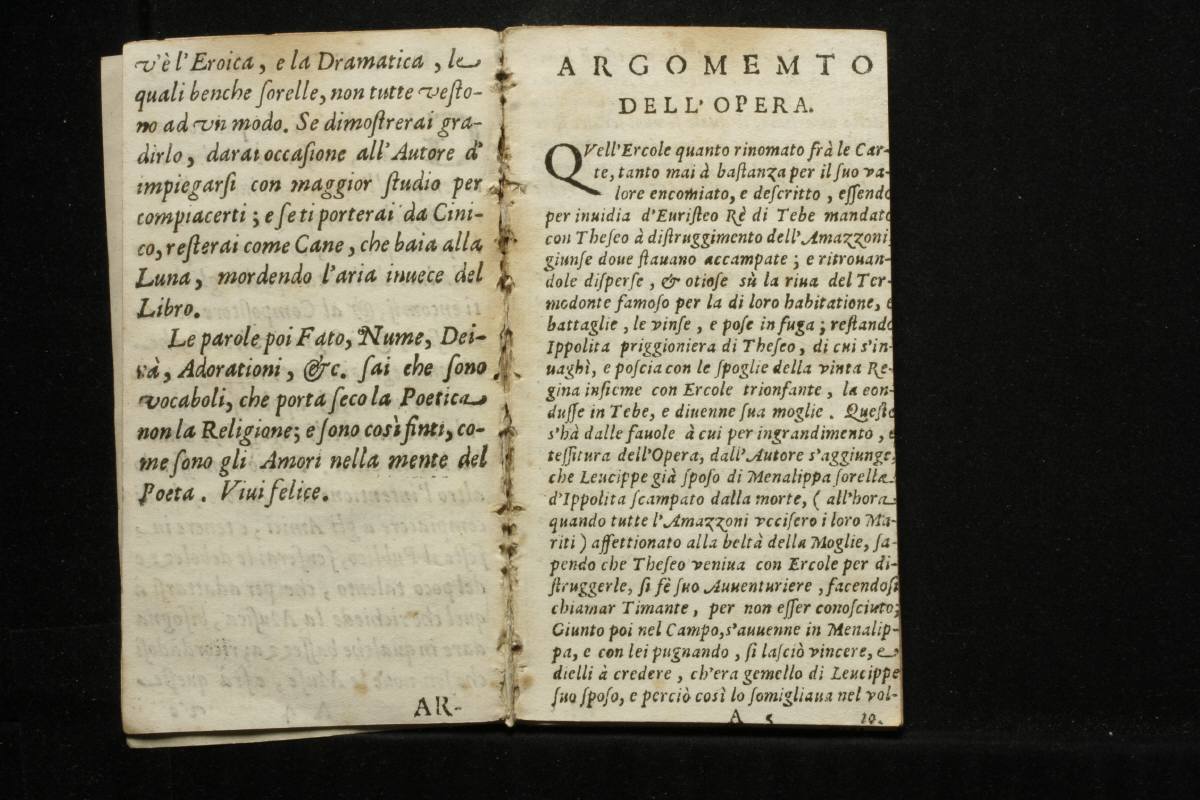 v'è l'Eroica, e la Dramatica, le
quali benche ſorelle, non tutte veſto-
no ad vn modo. Se dimoſtrerai gra-
dirlo, darai occaſione all'Autore d'
impiegarſi con maggior ſtudio per
compiacerti; e ſe ti porterai da Cini-
co, reſterai come Cane, che baia alla
Luna, mordendo l'aria inuece del
Libro.
Le parole poi Fato, Nume, Dei-
tà, Adorationi, &c. ſai che ſono
vocaboli, che porta ſeco la Poetica
non la Religione; e ſono così finti, co-
me ſono gli Amori nella mente del
Poeta. Viui felice.
AR-
ARGOMEMTO
DELL'OPERA.
QVell'Ercole quanto rinomato frà le Car-
te, tanto mai à baſtanza per il ſuo va-
lore encomiato, e deſcritto, eſſendo
per inuidia d'Euriſteo Rè di Tebe mandato
con Theſeo à diſtruggimento dell'Amazzoni,
giunſe doue ſtauano accampate; e ritrouan-
dole diſperſe, & otioſe sù la riua del Ter-
modonte famoſo per la di loro habitatione, e
battaglie, le vinſe, e poſe in fuga; reſtando
Ippolita priggioniera di Theſeo, di cui s'in-
uaghì, e poſcia con le ſpoglie della vinta Re-
gina inſieme con Ercole trionfante, la con-
duſſe in Tebe, e diuenne ſua moglie. Queſto
s'hà dalle fauole à cui per ingrandimento, e
teſſitura dell'Opera, dall'Autore s'aggiunge,
che Leucippe già ſpoſo di Menalippa ſorella
d'Ippolita ſcampato dalla morte, (all'hora
quando tutte l'Amazzoni vcciſero i loro Ma-
riti) affettionato alla beltà della Moglie, ſa-
pendo che Theſeo veniua con Ercole per di-
ſtruggerle, ſi fè ſuo Auuenturiere, facendoſi
chiamar Timante, per non eſſer conoſciuto;
Giunto poi nel Campo, s'auuenne in Menalip-
pa, e con lei pugnando, ſi laſciò vincere, e
dielli à credere, ch'era gemello di Leucippe
ſuo ſpoſo, e perciò così lo ſomigliaua nel vol-
A 5 to.